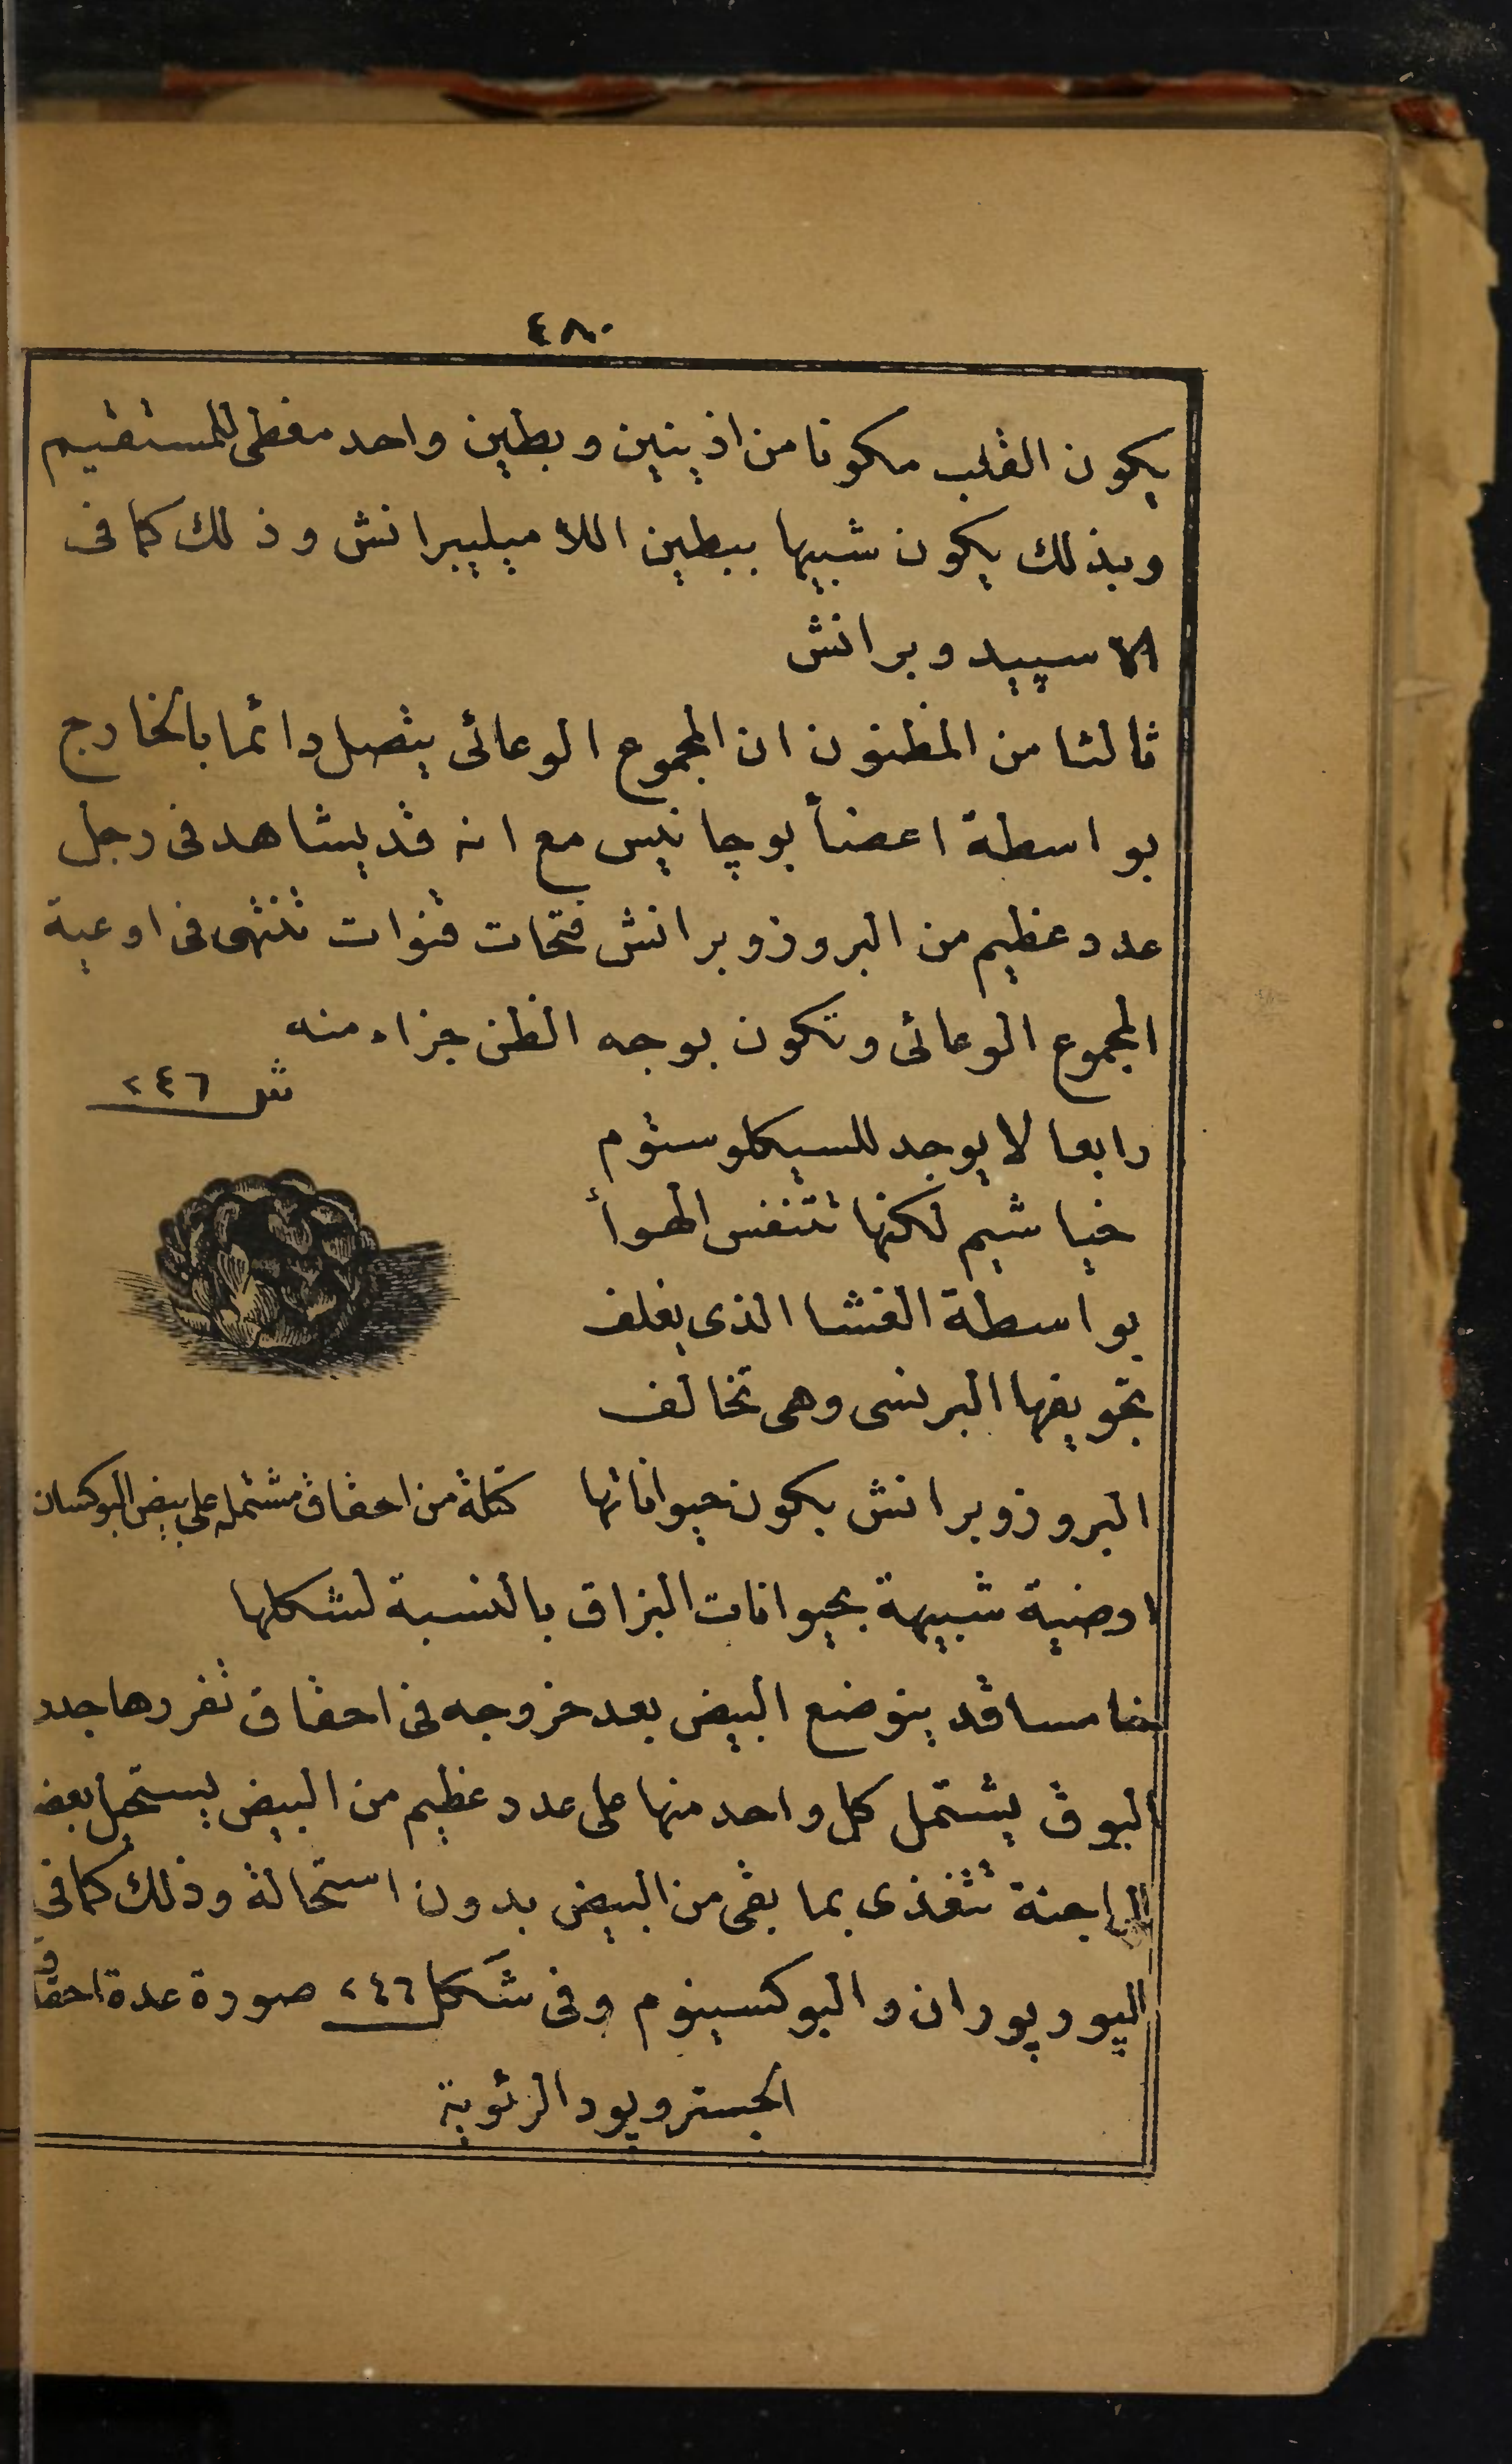 ٤٨٠
يكون القلب مكونا من اذينين وبطين واحد مغطى للمستقيم
وبذلك يكون شبيها ببطين اللاميليبرانش وذلك كما فى
الاسپيدوبرانش
ثالثا من المظنون ان المجموع الوعائى يتصل دائما بالخارج
بواسطة اعضأ بوچانيس مع انه قد يشاهد فى رجل
عدد عظيم من البروزوبرانش فتحات قنوات تنتهى فى اوعية
المجموع الوعائى وتكون بوجه الظن جزاء منه
ش ٢٤٦
رابعا لا يوجد للسيكلوستوم
خياشيم لكنها تتنفس الهوأ
بواسطة الغشا الذى يغلف
تجويفها البرنسى وهى تخالف
البروزوبرانش بكون حيواناتها
كتلة من احقاق مشتمله على بيض البوكسان
ارضية شبيهة بحيوانات البزاق بالنسبة لشكلها
خامسا قد يتوضع البيض بعد خروجه فى احقاق تفرزها جدد
البوق يشتمل كل واحد منها على عدد عظيم من البيض يستحيل بعضه
الى اجنة تتغذى بما بقى من البيض بدون استحالة وذلك كما فى
الپورپوران والبوكسينوم وفى شكل ٢٤٦ صورة عدة احقاق
الجستروپود الرئوية